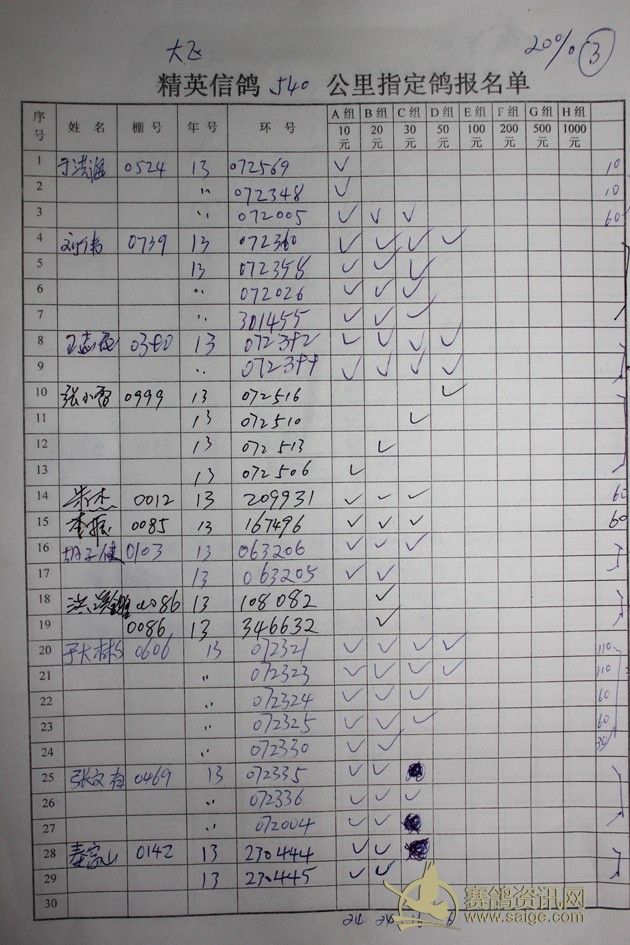 大飞
20% ③
精英信鸽 540 公里指定鸽报名单
序号 姓 名 棚 号 年 号 环 号 A 组 10 元 B 组 20 元 C 组 30 元 D 组 50 元 E 组 100 元 F 组 200 元 G 组 500 元 H 组 1000 元
1 0524 13 072569 ✓ 10
2 〃 072348 ✓ 10
3 〃 072005 ✓ ✓ ✓ 60
4 刘伟 0739 13 072360 ✓ ✓ ✓ ✓
5 13 072358 ✓ ✓ ✓
6 〃 072026 ✓ ✓ ✓
7 〃 301455 ✓ ✓ ✓
8 13 072392 ✓ ✓ ✓ ✓
9 〃 072399 ✓ ✓ ✓ ✓
10 张小雷 0999 13 072516 ✓
11 13 072510 ✓
12 13 072513 ✓
13 13 072506 ✓
14 朱杰 0012 13 209931 ✓ ✓ ✓ 60
15 0085 13 167496 ✓ ✓ ✓ 60
16 胡子健 0103 13 063206 ✓ ✓ ✓
17 13 063205 ✓ ✓
18 0086 13 108082 ✓
19 0086 13 346632 ✓
20 于大彬 0606 13 072321 ✓ ✓ ✓ ✓ 110
21 〃 072323 ✓ ✓ ✓ ✓ 110
22 〃 072324 ✓ ✓ ✓ 60
23 〃 072325 ✓ ✓ ✓ 60
24 〃 072330 ✓ ✓ 30
25 张文有 0469 13 072335 ✓ ✓
26 〃 072336 ✓ ✓ ✓
27 〃 072004 ✓ ✓
28 0142 13 230444 ✓ ✓
29 13 230445 ✓ ✓
30
赛鸽资讯网
www.saige.com